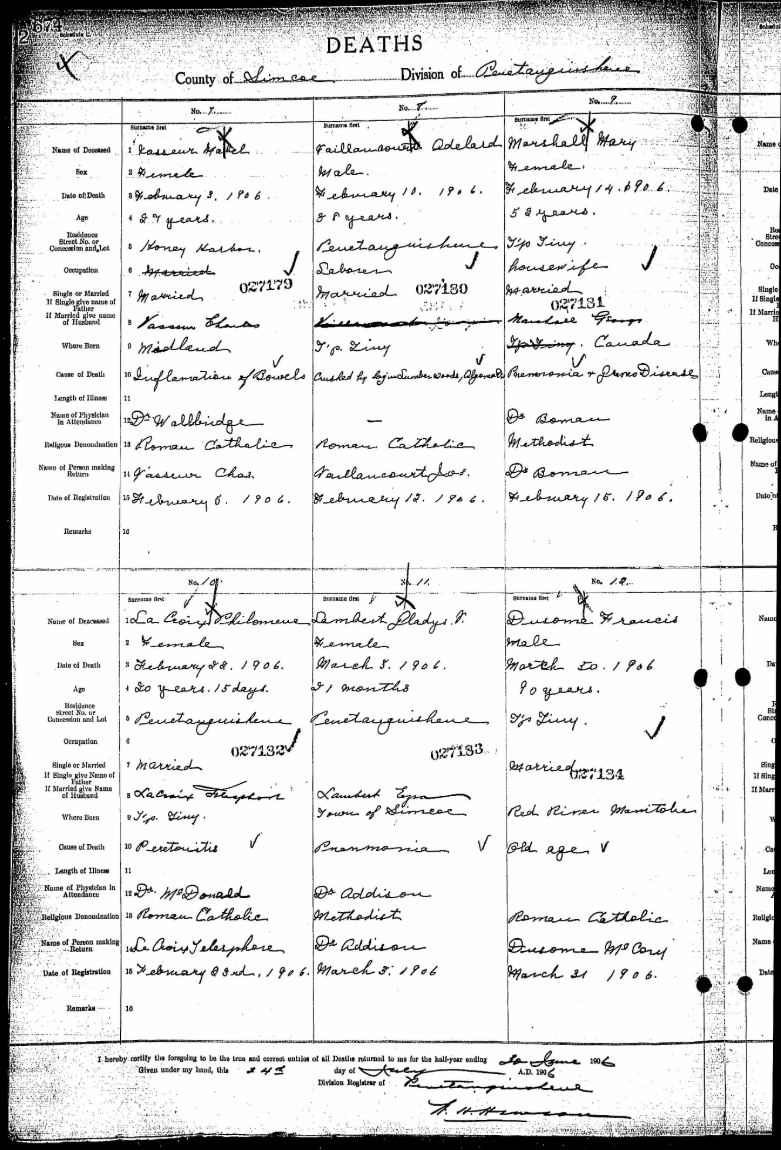 674
DEATHS
County of Simcoe Division of Penetanguishene
No. 7. No. 8. No. 9.
Surname first Surname first Surname first
Name of Deceased 1 Vasseur Mabel Vaillancourt Adelard Marshall Mary
Sex 2 Female Male. Female.
Date of Death 3 February 3, 1906. February 10. 1906. February 14. 1906.
Age 4 27 years. 38 years. 52 years.
Residence Street No. or Concession and Lot 5 Honey Harbor. Penetanguishene T'p Tiny
Occupation 6 Married Laborer housewife
027179 027180 027181
Single or Married 7 Married Married Married
If Single give name of Father If Married give name of Husband 8 Vasseur Charles Marshall George
Where Born 9 Midland T'p. Tiny T'p Tiny. Canada
Cause of Death 10 Inflamation of Bowels Crushed by log in Lumber woods, Pneumonia &  Disease
Length of Illness 11
Name of Physician in Attendance 12 Dr Wallbridge — Dr Boman
Religious Denomination 13 Roman Catholic Roman Catholic Methodist
Name of Person making Return 14 Vasseur Chas. Vaillancourt Jos. Dr Boman
Date of Registration 15 February 5. 1906. February 12. 1906. February 15. 1906.
Remarks 16
No. 10. No. 11. No. 12.
Surname first Surname first Surname first
Name of Deceased 1 La Croix Philomene Lambert Gladys V. Dusome Francis
Sex 2 Female Female Male
Date of Death 3 February 22. 1906. March 3. 1906. March 30. 1906
Age 4 20 years. 15 days. 21 months 90 years.
Residence Street No. or Concession and Lot 5 Penetanguishene Penetanguishene T'p Tiny.
Occupation 6
027182 027183 027184
Single or Married 7 Married Married
If Single give Name of Father If Married give Name of Husband 8 LaCroix Lambert Ezra
Where Born 9 T'p. Tiny. Town of Simcoe Red River Manitoba
Cause of Death 10 Peretonitis Pneumonia Old age
Length of Illness 11
Name of Physician in Attendance 12 Dr. McDonald Dr Addison
Religious Denomination 13 Roman Catholic Methodist Roman Catholic
Name of Person making Return 14 La Croix Telesphore Dr Addison Dusome McCory
Date of Registration 15 February 23rd, 1906. March 3. 1906 March 31 1906.
Remarks 16
I hereby certify the foregoing to be the true and correct entries of all Deaths returned to me for the half-year ending 30 June 1906
Given under my hand, this 24th day of July A.D. 1906
Division Registrar of Penetanguishene